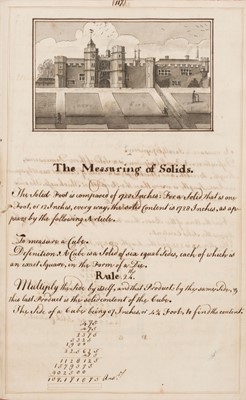 (117)
The Measuring of Solids.
The Solid Foot is composed of 1728 Inches; For a Solid that is one
Foot, or 12 Inches, every way, the solid Content is 1728 Inches, as ap-
pears by the following Article.
To measure a Cube.
Definition. A Cube is a Solid of six equal Sides, each of which is
an exact Square, in the Form of a Die.
Rule
Multiply the Side by itself, and that Product by the same Side, &
this last Product is the solid content of the Cube.
The Side of a Cube being Inches, or Foot, to find the content.
4,75
4,75
2375
3325
1900